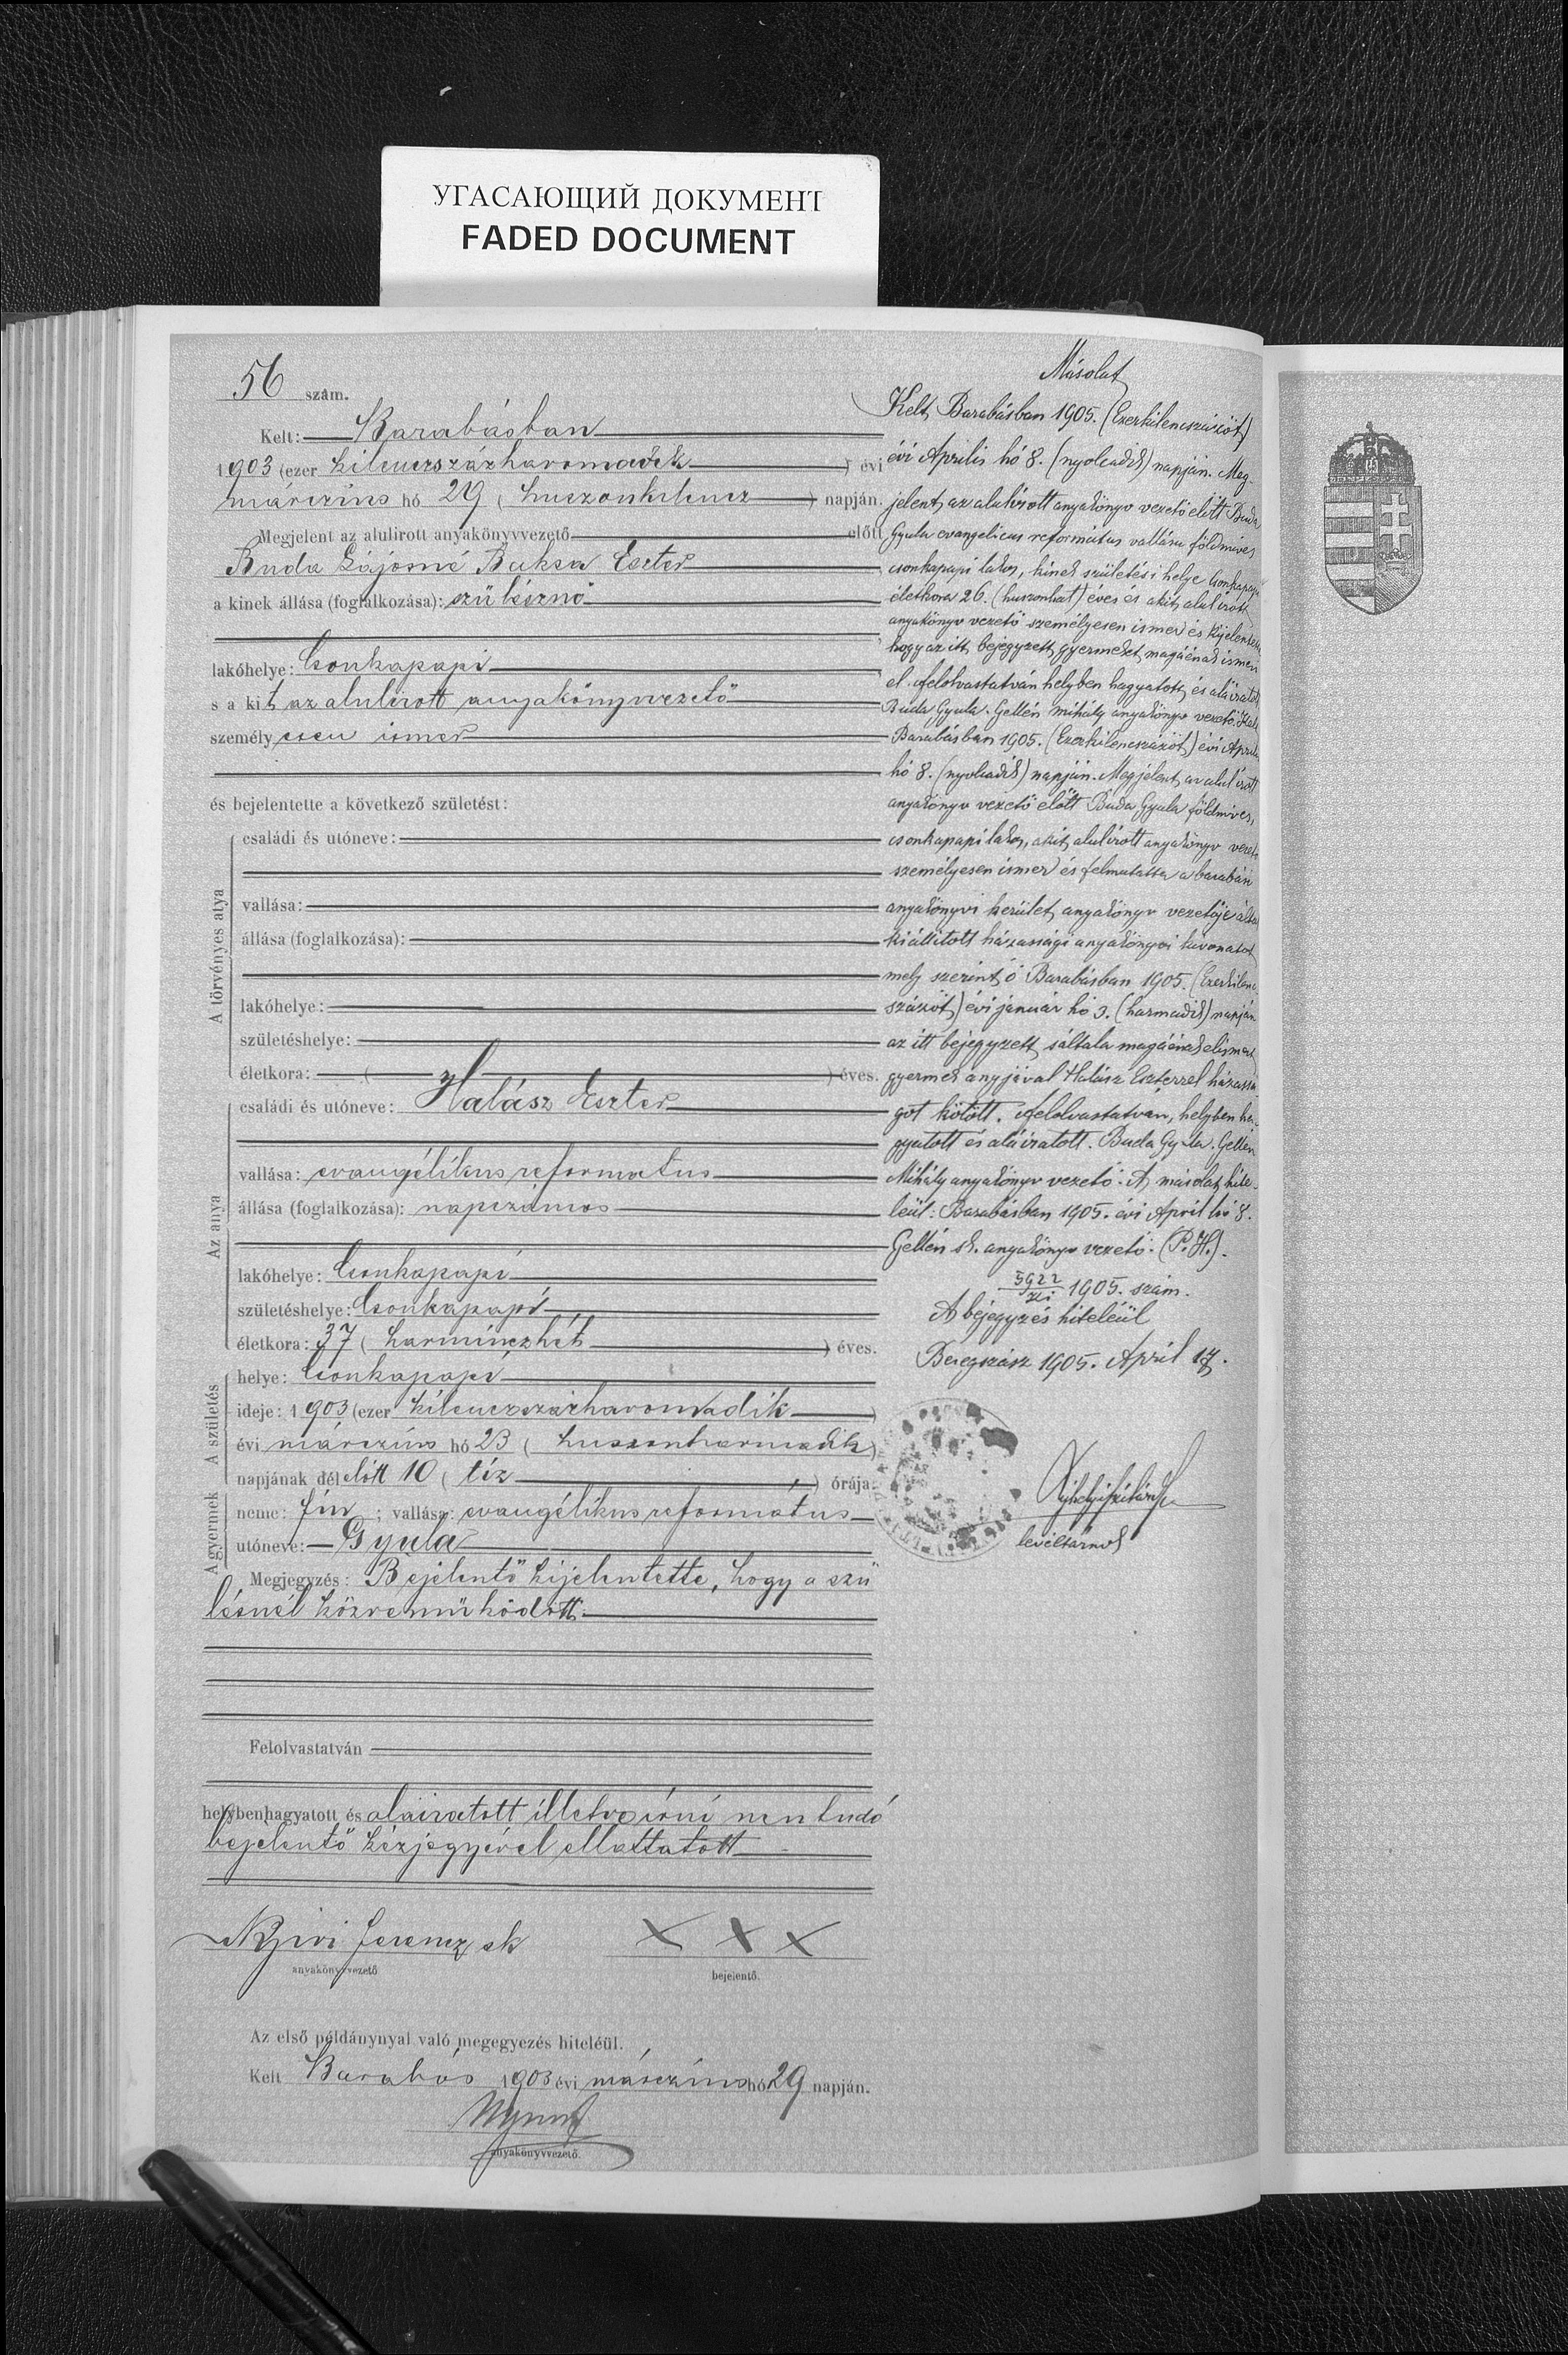 УГАСАЮЩИЙ ДОКУМЕНТ
FADED DOCUMENT
56 szám.
Kelt: Barabásban
1903 (ezer kilenczszázharomadik) évi
márczius hó 29 (huszonkilencz) napján.
Megjelent az alulirott anyakönyvvezető előtt
Buda Lájosné Baksa Eszter
a kinek állása (foglalkozása): szülésznő
lakóhelye: Csonkapapi
s a kit az alulirott anyakönyvvezető
személyesen ismer
és bejelentette a következő születést:
A törvényes atya
családi és utóneve:
vallása:
állása (foglalkozása):
lakóhelye:
születéshelye:
életkora: ( ) éves.
Az anya
családi és utóneve: Halász Eszter
vallása: evangélikus reformatus
állása (foglalkozása): napszámos
lakóhelye: Csonkapapi
születéshelye: Csonkapapi
életkora: 37 (harminczhét) éves.
A születés
helye: Csonkapapi
ideje: 1903 (ezer kilenczszázharomadik)
évi márczius hó 23 (huszonharmadik)
napjának délelőtt 10 (tíz) órája.
A gyermek
neme: fiu; vallása: evangélikus református
utóneve: Gyula
Megjegyzés: Bejelentő kijelentette, hogy a szü
lésnél közreműködött.
Felolvastatván
helybenhagyatott és aláiratott illetve irni nem tudó
bejelentő kézjegyével ellattatott
Ferencz sk
anyakönyvvezető
X X X
bejelentő.
Az első példánynyal való megegyezés hiteléül.
Kelt Barabás 1903 évi márczius hó 29 napján.
anyakönyvvezető.
Másolat
Kelt Barabásban 1905. (Ezerkilencszázöt)
évi Április hó 8. (nyolcadik) napján. Meg
jelent az alulírott anyakönyv vezető előtt Buda
Gyula evangelicus református vallásu földmíves
csonkapapi lakos, kinek születési helye Csonkapapi
életkora 26. (huszonhat) éves és akit alulírott
anyakönyv vezető személyesen ismer és kijelentette
hogy az itt bejegyzett gyermeket magáénak ismeri
el. Felolvastatván helyben hagyatott és aláíratott
Buda Gyula. Gellén Mihály anyakönyv vezető. Kelt
Barabásban 1905. (Ezerkilencszázöt) évi Április
hó 8. (nyolcadik) napján. Megjelent az alulírott
anyakönyv vezető előtt Buda Gyula földmíves,
csonkapapi lakos, akit alulírott anyakönyv vezető
személyesen ismer és felmutatta a barabási
anyakönyvi kerület anyakönyv vezetője által
kiállított házassági anyakönyvi kivonatot
mely szerint ő Barabásban 1905. (Ezerkilenc
százöt) évi január hó 3. (harmadik) napján
az itt bejegyzett s általa magáénak elismert
gyermek anyjával Halász Eszterrel házassá
got kötött. Felolvastatván, helyben ha-
gyatott és aláíratott. Buda Gyula. Gellén
Mihály anyakönyv vezető. A másolat hite-
leül: Barabásban 1905. évi Április hó 8.
Gellén sk. anyakönyv vezető. (P.H.).
5922 1905. szám.
A bejegyzés hiteleül
Beregszász 1905. Április 17.
levéltárnok